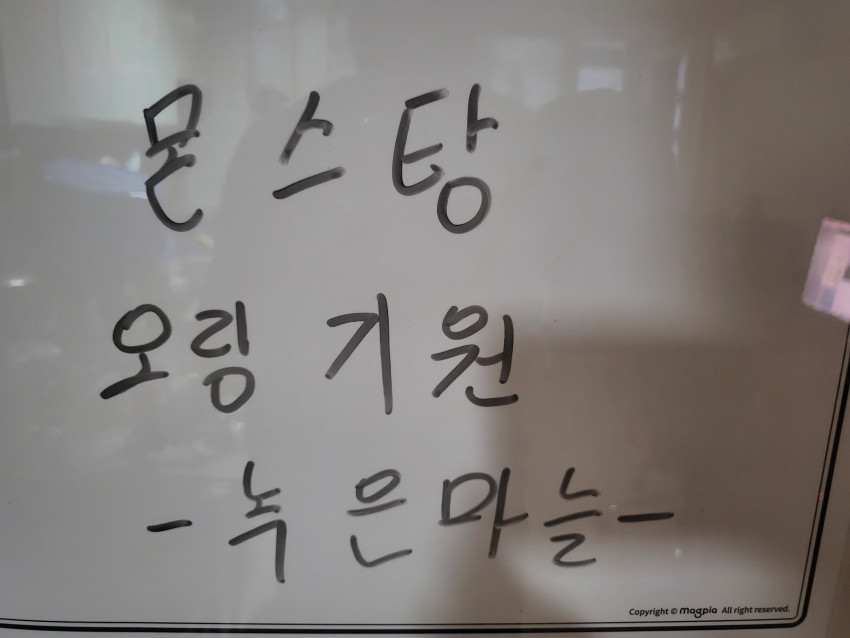 몬스탕
오링 기원
-녹은마늘-
Copyright © magpia All right reserved.